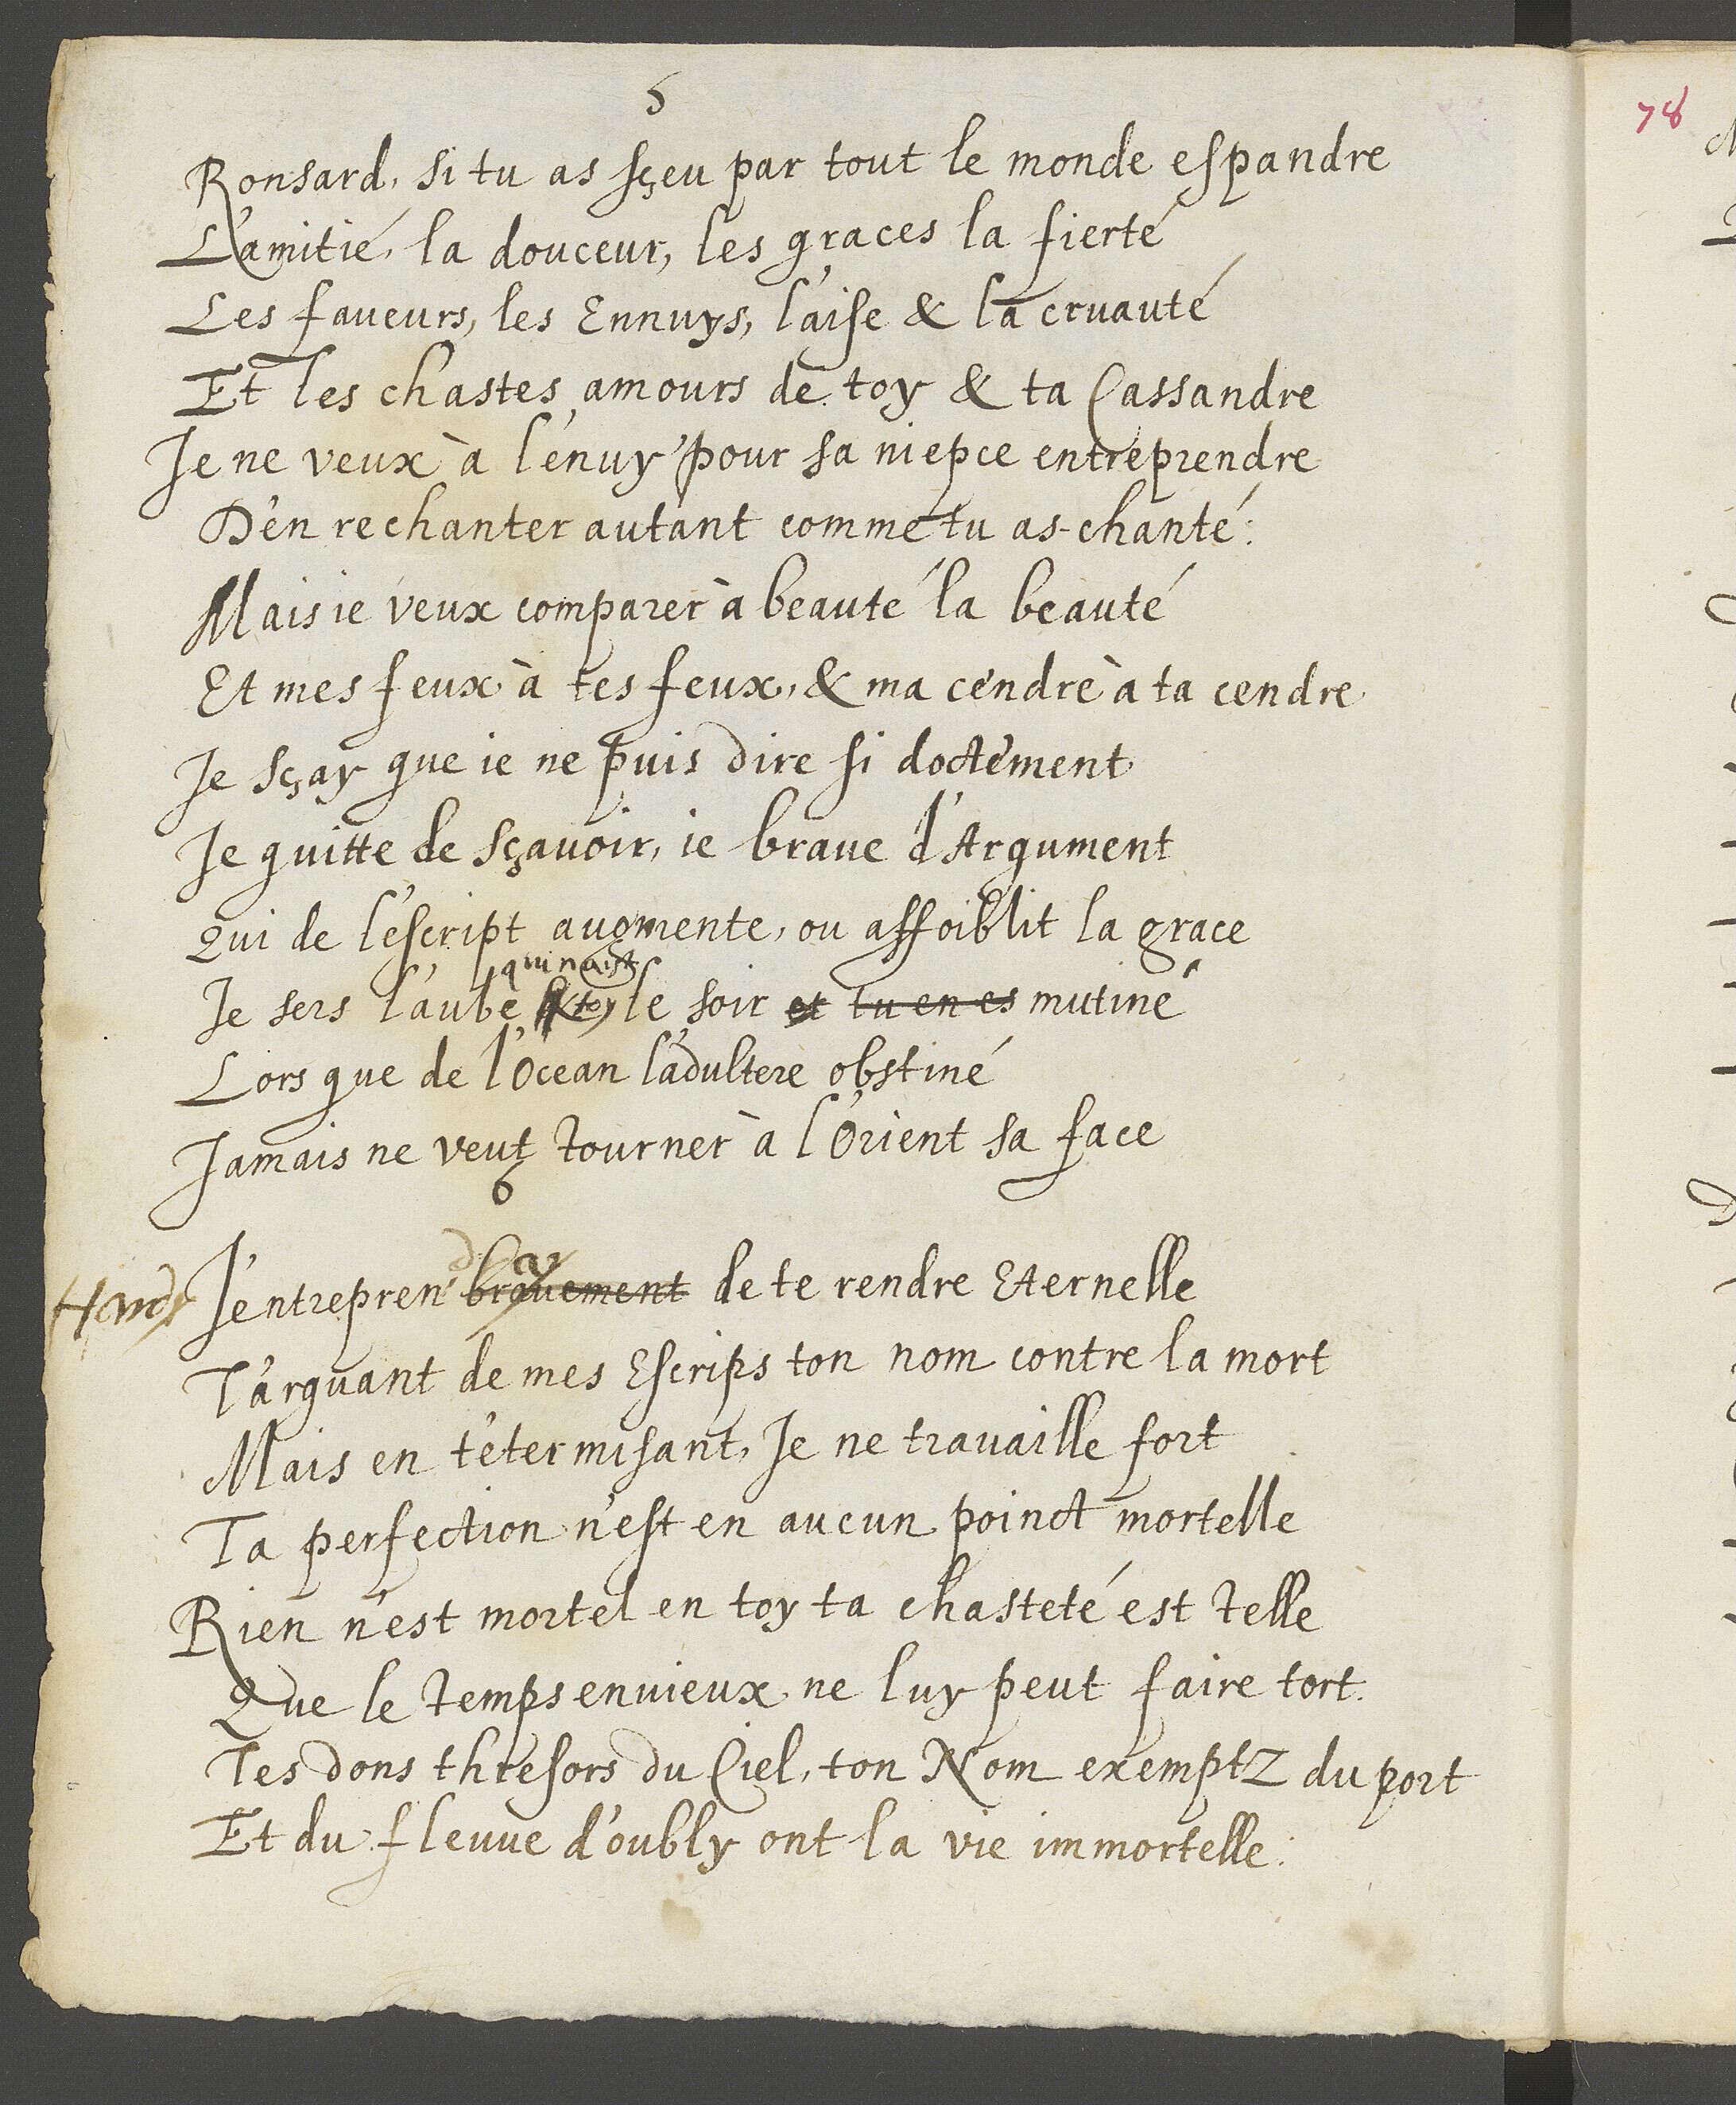 5
Ronsard, si tu as sçeu par tout le monde espandre
L'amitié, la douceur, les graces la fierté
Les faueurs, les Ennuys, l'aise & la cruauté
Et les chastes amours de toy & ta Cassandre
Je ne veux à l'enuy pour sa niepce entreprendre
D'en rechanter autant comme tu as chanté:
Mais ie veux comparer à beauté la beauté
Et mes feux à tes feux, & ma cendre à ta cendre
Je sçay que ie ne puis dire si doctement
Je quitte de sçauoir, ie braue d'Argument
Qui de l'escript augmente, ou affoiblit la grace
qui naist
Je sers l'aube & toy le soir et tu en es mutiné
Lors que de l'Ocean l'adultere obstiné
Jamais ne veut tourner à l'Orient sa face
6
Hardy J'entrepren brauement de te rendre Eternelle
T'arquant de mes Escrips ton nom contre la mort
Mais en t'eternisant, Je ne trauaille fort
Ta perfection n'est en aucun poinct mortelle
Rien n'est mortel en toy ta chasteté est telle
Que le temps enuieux ne luy peut faire tort.
Tes dons thresors du Ciel, ton Nom exemptz du port
Et du fleuue d'oubly ont la vie immortelle:
78